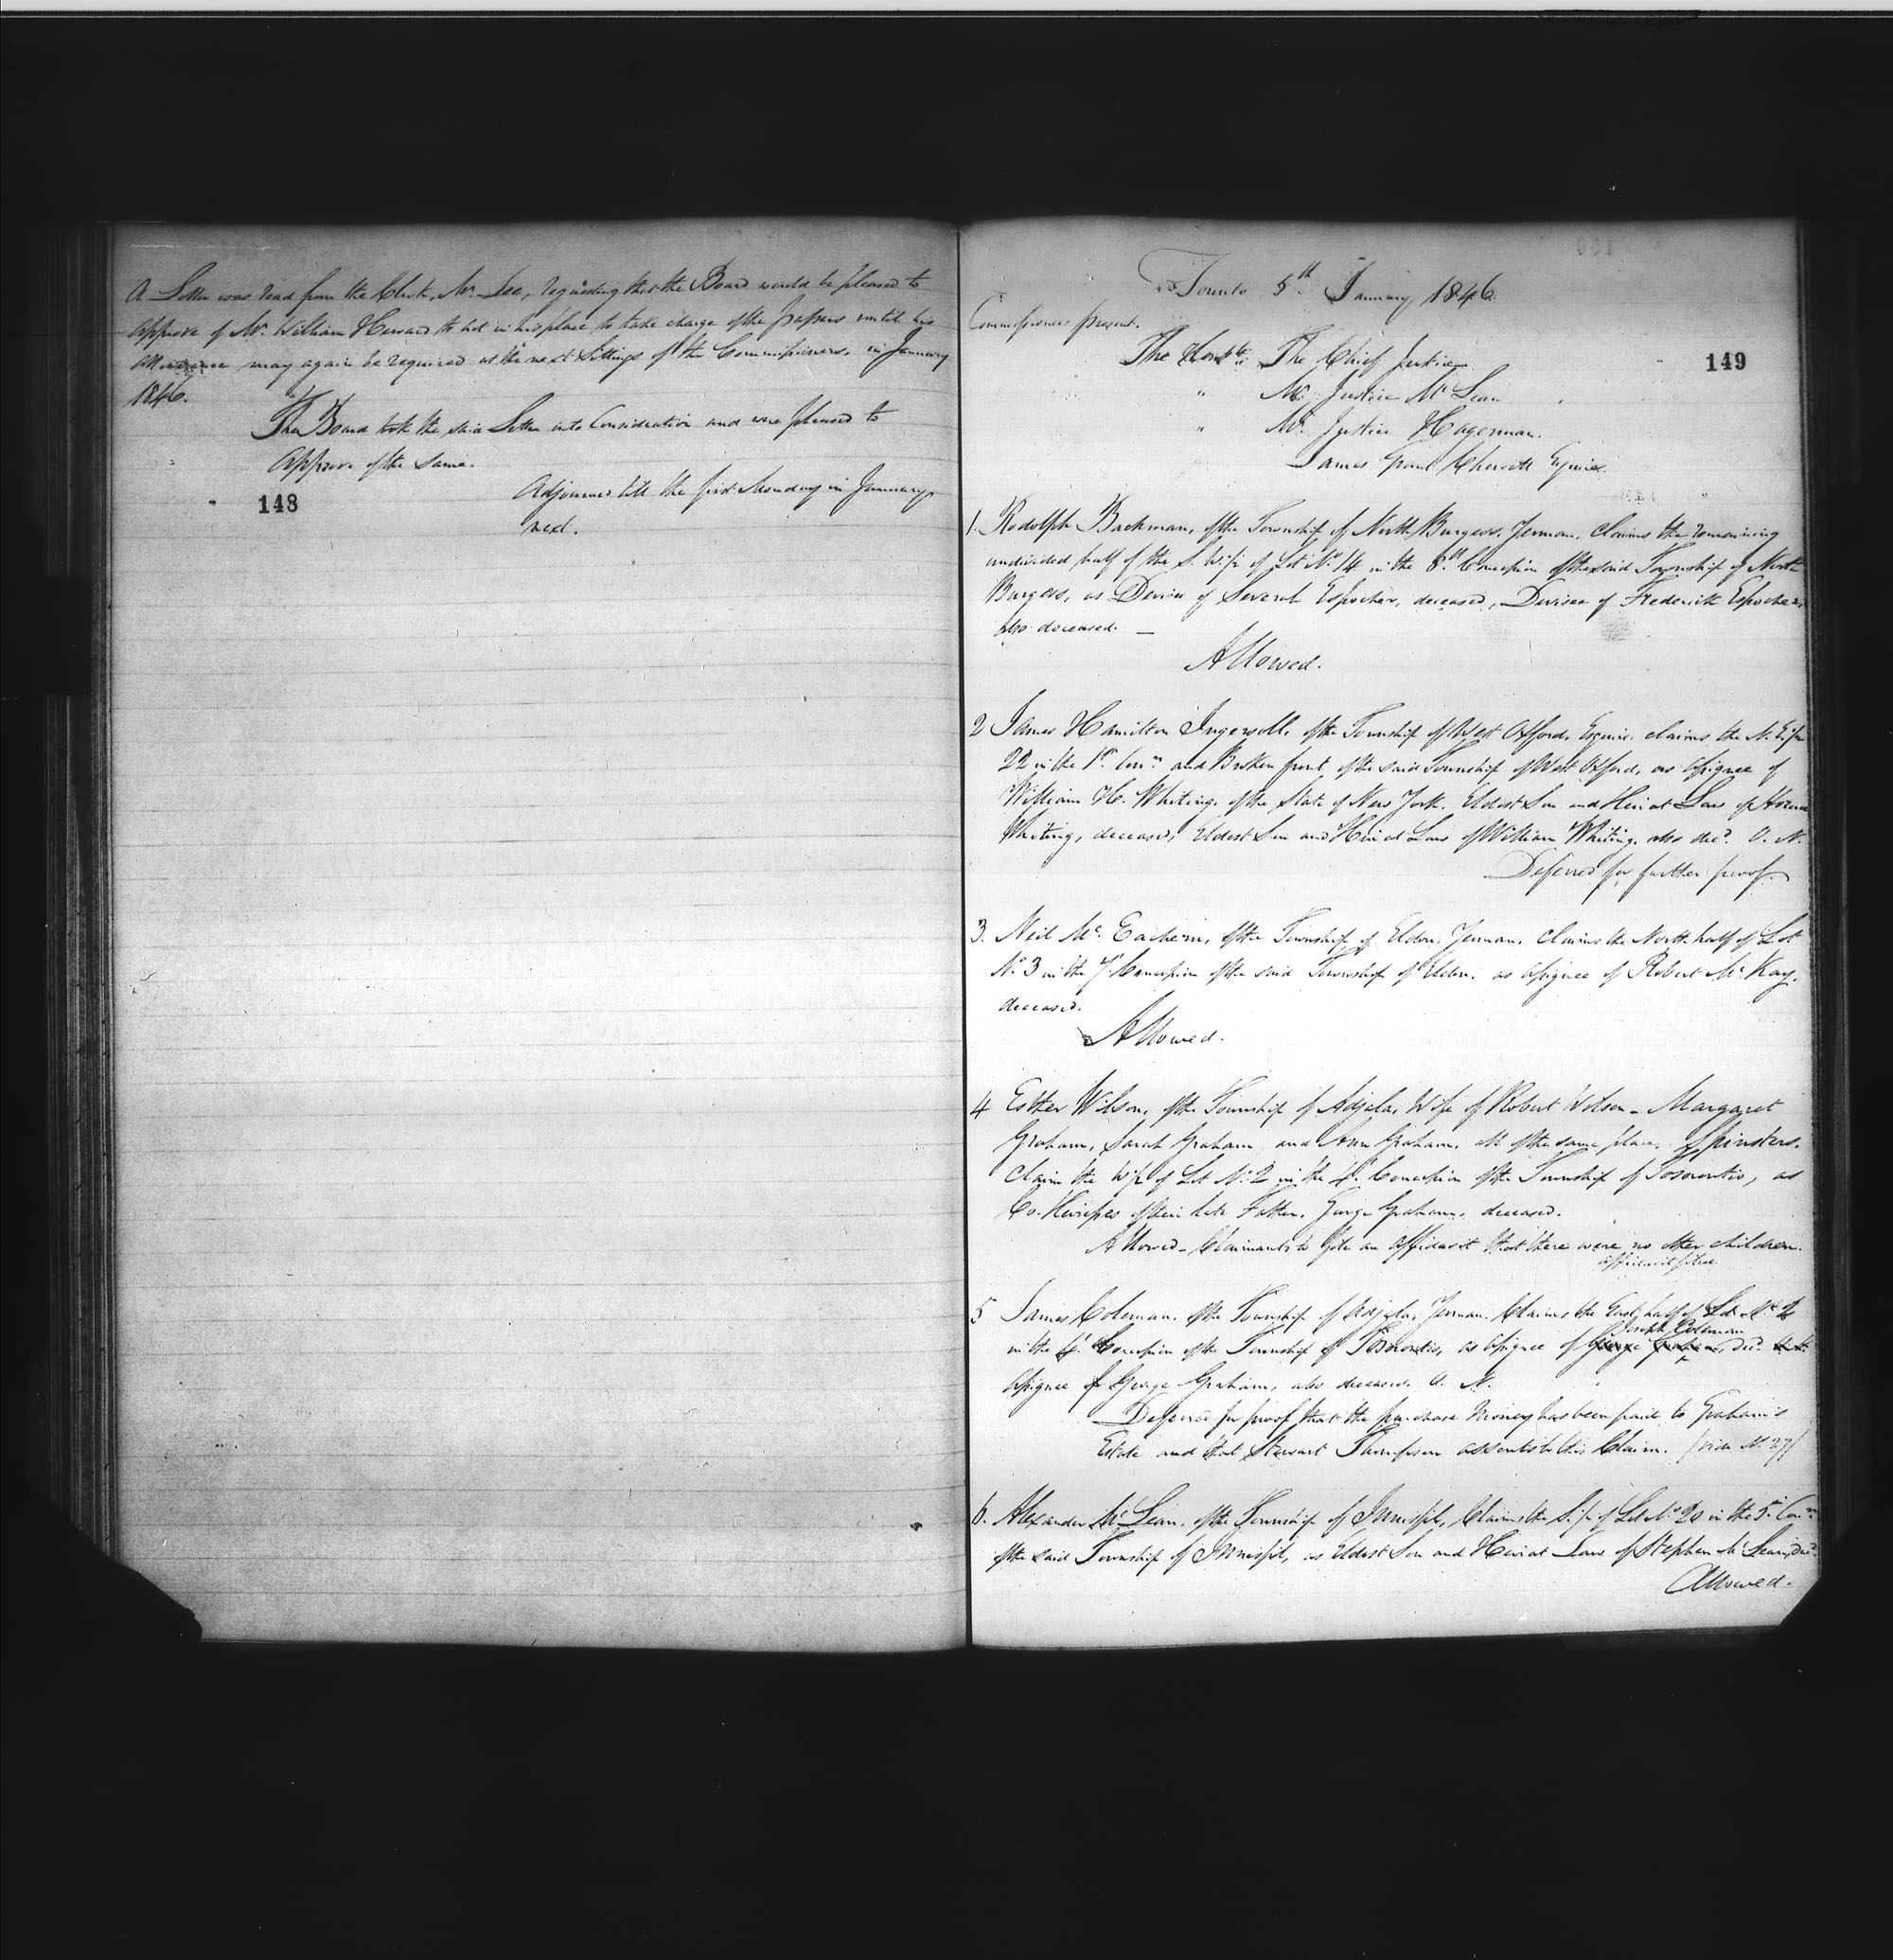 A Letter was read from the Clerk, Mr. Lee, requesting that the Board would be pleased to
approve of Mr. William Heward to act in his place to take charge of the papers until his
attendance may again be required at the next Sittings of the Commissioners, in January
1846.
The Board took the said Letter into Consideration and were pleased to
Approve of the same.
148
Adjourned till the first Monday in January
next.
Toronto 5th January 1846.
Commissioners present.
The Honble. The Chief Justice
149
" Mr. Justice McLean
" Mr. Justice Hagerman.
James Grant Chewett Esquire.
1. Rodolph Backman, of the Township of North Burgess, Yeoman, Claims the remaining
undivided half of the S. W. ½ of Lot No. 14 in the 8th Concession of the said Township of North
Burgess, as Devisee of, deceased, Devisee of Frederick
also deceased. —
Allowed.
2 James Hamilton Ingersoll, of the Township of West Oxford, Esquire, claims the N. E. pt
22 in the 1st Conn and Broken front of the said Township of West Oxford, as Assignee of
William H. Whiting, of the State of New York, Eldest Son and Heir at Law of
Whiting, deceased, Eldest Son and Heir at Law of William Whiting, also decd. O. N.
Deferred for further proof.
3. Neil Mc.Eachern, of the Township of Eldon, Yeoman, Claims the North half of Lot
No. 3 in the 7th Concession of the said Township of Eldon, as Assignee of Robert McKay,
deceased.
Allowed.
4 Esther Wilson, of the Township of Adjala, Wife of Robert Wilson – Margaret
Graham, Sarah Graham, and Ann Graham, all of the same place, Spinsters.
Claim the W ½ of Lot No. 2 in the 4th Concession of the Township of Tosorontio, as
Co-Heiresses of their late Father, George Graham, deceased.
Allowed – Claimants to file an affidavit that there were no other children.
affidavit filed
5 James Coleman, of the Township of Adjala, Yeoman. Claims the East half of Lot No. 2
Joseph Coleman
in the 4th Concession of the Township of Tosorontio, as Assignee of George Graham, decd.
Assignee of George Graham, also deceased. O. N.
Deferred for proof that the purchase Money has been paid to Graham's
Estate and that Stewart Thompson assents to this Claim. (vide No. 27)
6. Alexander McLean, of the Township of Innisfil, Claims the S. ½ of Lot No. 20 in the 5th Conn
of the said Township of Innisfil, as Eldest Son and Heir at Law of Stephen McLean, Decd.
Allowed.